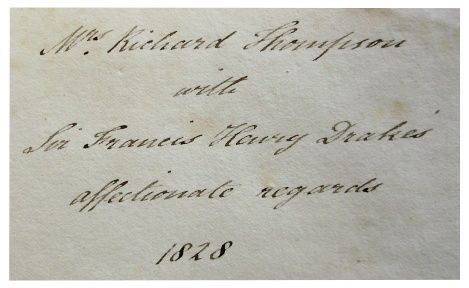 Mrs. Richard Thompson
with
Sir Francis Henry Drake's
affectionate regards
1828